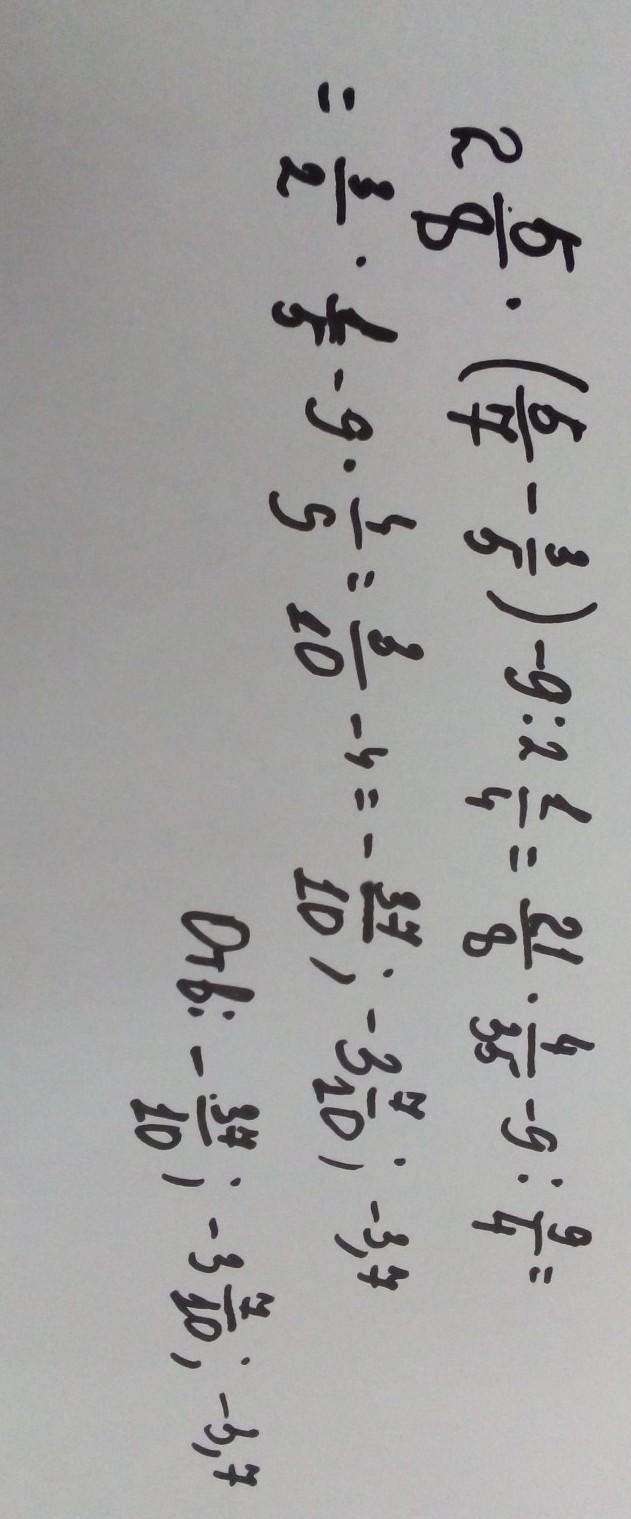 2 5/8 · (5/7 - 3/5) - 9 : 2 1/4 = 21/8 · 4/35 - 9 : 9/4 =
= 3/2 · 1/5 - 9 · 4/9 = 3/10 - 4 = - 37/10; - 3 7/10; - 3,7
Отв: - 37/10; - 3 7/10; - 3,7